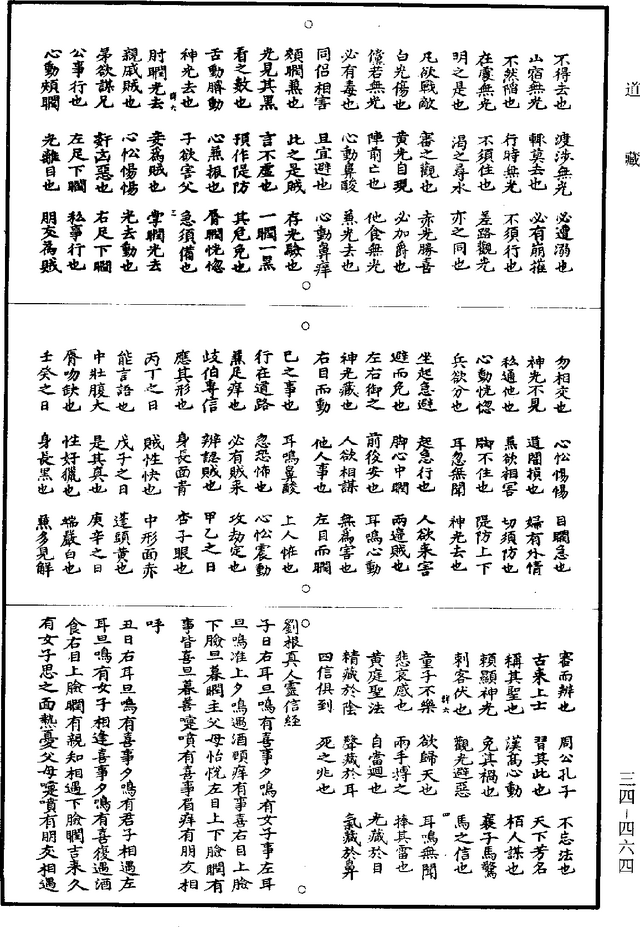 道藏
不得去也　渡涉無光　必遭溺也
山宿無光　輒莫去也　必有崩摧
不然陷也　行時無光　不須行也
在處無光　不須住也　差路觀光
明之是也　渴之尋水　亦之同也
凡欲戰敵　審之觀也　赤光勝喜
白光傷也　黃光自現　必加爵也
儻若無光　陣前亡也　他食無光
必有毒也　心動鼻酸　蕉光去也
同侶相害　且宜避也　心動鼻痒
頰瞤蕉也　此之是賊　存光驗也
光見其黑　言不虛也　一瞤一黑
看之數也　預作隄防　其危免也
舌動臍動　心蕉振也　脣瞤恍惚
神光去也　子欲害父　急須備也
肘瞤光去　妾為賊也　掌瞤光去
親戚賊也　心忪惕惕　光去動也
弟欲謀兄　姧凶惡也　右足下瞤
公事行也　左足下瞤　私事行也
心動頰瞤　光離目也　朋友為賊
勿相交也　心忪惕惕　目瞤急也
神光不見　道闇損也　婦有外情
私通他也　蕉欲相害　切須防也
心動恍惚　腳不住也　隄防上下
兵欲分也　耳忽無聞　神光去也
坐起急避　起急行也　人欲來害
避而免也　腳心中瞤　兩邊賊也
左右御之　前後安也　耳鳴心動
神光藏也　人欲相謀　無為害也
右目而動　他人事也　左目而瞤
已之事也　耳鳴鼻酸　上人恠也
行在道路　忽恐怖也　心忪震動
蕉足痒也　必有賊來　攻劫定也
歧伯專信　辨認賊也　甲乙之日
應其形也　身長面青　杏子眼也
丙丁之日　賊性快也　中形面赤
能言語也　戊子之日　蓬頭黃也
中壯腹大　是其真也　庚辛之日
脣吻缺也　性好獵也　端嚴白也
壬癸之日　身長黑也　蕉多見解
審而辨也　周公孔子　不忘法也
古來上士　習其此也　天下芳名
稱其聖也　漢高心動　栢人謀也
賴顯神光　免其禍也　襄子馬驚
刺客伏也　觀光避惡　馬之信也
童子不樂　欲歸天也　耳鳴無聞
悲哀感也　兩手搏之　捧其雷也
黃庭聖法　自當迴也　光藏於目
精藏於陰　聲藏於耳　氣藏於鼻
四信俱到　死之兆也
劉根真人靈信經
子日右耳旦鳴有喜事夕鳴有女子事左耳
旦鳴准上夕鳴遇酒頭痒有事喜右目上臉
下臉旦暮瞤主父母怡悅左目上下臉瞤有
事皆喜旦暮善嚏噴有喜事眉痒有朋友相
呼
丑日右耳旦鳴有喜事夕鳴有君子相遇左
耳旦鳴有女子相逢喜事夕鳴有喜復遇酒
食右目上臉瞤有親知相遇下臉瞤吉來久
有女子思之面熱憂父母嚏噴有朋友相遇
三四－四六四